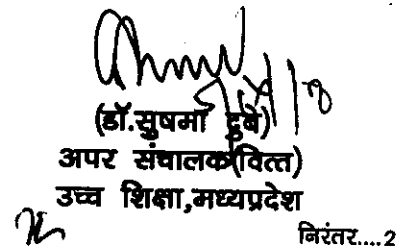 (डॉ.सुषमा दुबे)
अपर संचालक(वित्त)
उच्च शिक्षा,मध्यप्रदेश
निरंतर....2